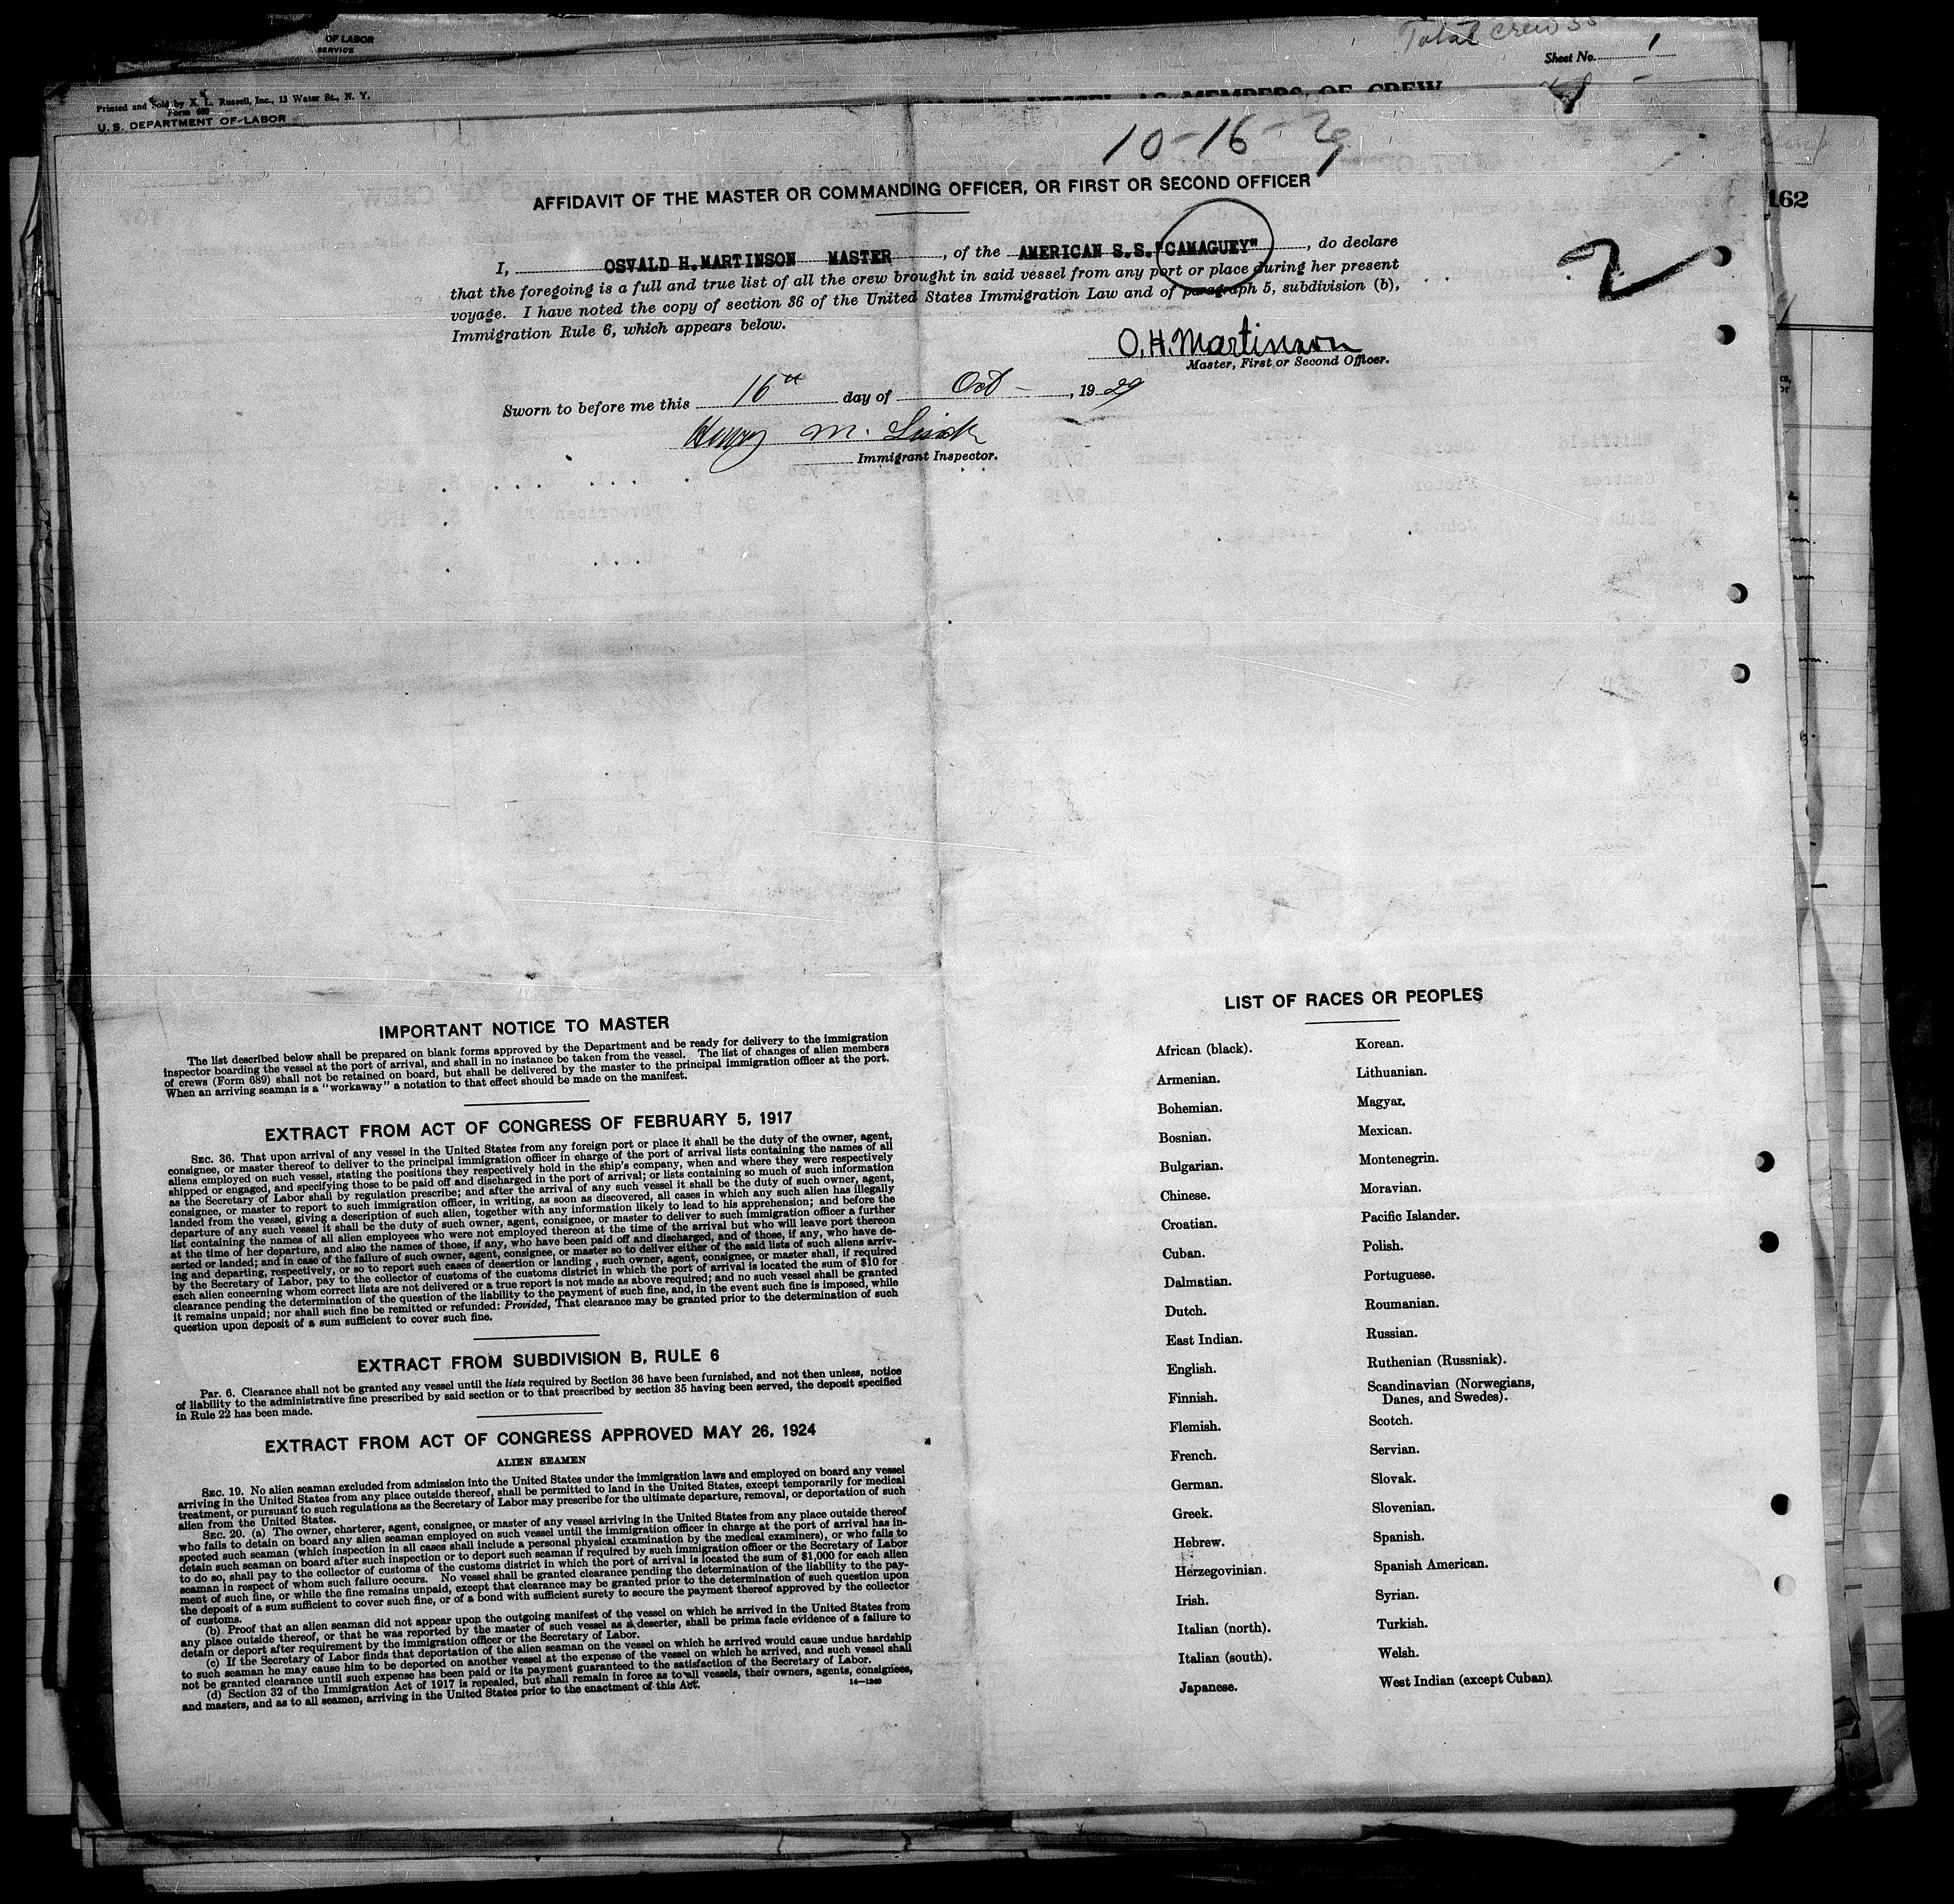 OF LABOR
SERVICE
Total crew
Sheet No. 1
Printed and Sold by X. L. Russell, Inc., 13 Water St., N. Y.
Form 680
U. S. DEPARTMENT OF LABOR
AS MEMBERS OF CREW
10-16-29
162
AFFIDAVIT OF THE MASTER OR COMMANDING OFFICER, OR FIRST OR SECOND OFFICER
2
I, OSVALD H.MARTINSON MASTER, of the AMERICAN S.S. "CAMAGUEY", do declare
that the foregoing is a full and true list of all the crew brought in said vessel from any port or place during her present
voyage. I have noted the copy of section 36 of the United States Immigration Law and of paragraph 5, subdivision (b),
Immigration Rule 6, which appears below.
O. H. Martinson
Master, First or Second Officer.
Sworn to before me this 16th day of Oct - , 1929
Henry M.
Immigrant Inspector.
IMPORTANT NOTICE TO MASTER
The list described below shall be prepared on blank forms approved by the Department and be ready for delivery to the immigration
inspector boarding the vessel at the port of arrival, and shall in no instance be taken from the vessel. The list of changes of alien members
of crews (Form 689) shall not be retained on board, but shall be delivered by the master to the principal immigration officer at the port.
When an arriving seaman is a "workaway" a notation to that effect should be made on the manifest.
EXTRACT FROM ACT OF CONGRESS OF FEBRUARY 5, 1917
SEC. 36. That upon arrival of any vessel in the United States from any foreign port or place it shall be the duty of the owner, agent,
consignee, or master thereof to deliver to the principal immigration officer in charge of the port of arrival lists containing the names of all
aliens employed on such vessel, stating the positions they respectively hold in the ship's company, when and where they were respectively
shipped or engaged, and specifying those to be paid off and discharged in the port of arrival; or lists containing so much of such information
as the Secretary of Labor shall by regulation prescribe; and after the arrival of any such vessel it shall be the duty of such owner, agent,
consignee, or master to report to such immigration officer, in writing, as soon as discovered, all cases in which any such alien has illegally
landed from the vessel, giving a description of such alien, together with any information likely to lead to his apprehension; and before the
departure of any such vessel it shall be the duty of such owner, agent, consignee, or master to deliver to such immigration officer a further
list containing the names of all alien employees who were not employed thereon at the time of the arrival but who will leave port thereon
at the time of her departure, and also the names of those, if any, who have been paid off and discharged, and of those, if any, who have de-
serted or landed; and in case of the failure of such owner, agent, consignee, or master so to deliver either of the said lists of such aliens arriv-
ing and departing, respectively, or so to report such cases of desertion or landing , such owner, agent, consignee, or master shall, if required
by the Secretary of Labor, pay to the collector of customs of the customs district in which the port of arrival is located the sum of $10 for
each alien concerning whom correct lists are not delivered or a true report is not made as above required; and no such vessel shall be granted
clearance pending the determination of the question of the liability to the payment of such fine, and, in the event such fine is imposed, while
it remains unpaid; nor shall such fine be remitted or refunded: Provided, That clearance may be granted prior to the determination of such
question upon deposit of a sum sufficient to cover such fine.
EXTRACT FROM SUBDIVISION B, RULE 6
Par. 6. Clearance shall not be granted any vessel until the lists required by Section 36 have been furnished, and not then unless, notice
of liability to the administrative fine prescribed by said section or to that prescribed by section 35 having been served, the deposit specified
in Rule 22 has been made.
EXTRACT FROM ACT OF CONGRESS APPROVED MAY 26, 1924
ALIEN SEAMEN
SEC. 19. No alien seaman excluded from admission into the United States under the immigration laws and employed on board any vessel
arriving in the United States from any place outside thereof, shall be permitted to land in the United States, except temporarily for medical
treatment, or pursuant to such regulations as the Secretary of Labor may prescribe for the ultimate departure, removal, or deportation of such
alien from the United States.
SEC. 20. (a) The owner, charterer, agent, consignee, or master of any vessel arriving in the United States from any place outside thereof
who fails to detain on board any alien seaman employed on such vessel until the immigration officer in charge at the port of arrival has in-
spected such seaman (which inspection in all cases shall include a personal physical examination by the medical examiners), or who fails to
detain such seaman on board after such inspection or to deport such seaman if required by such immigration officer or the Secretary of Labor
to do so, shall pay to the collector of customs of the customs district in which the port of arrival is located the sum of $1,000 for each alien
seaman in respect of whom such failure occurs. No vessel shall be granted clearance pending the determination of the liability to the pay-
ment of such fine, or while the fine remains unpaid, except that clearance may be granted prior to the determination of such question upon
the deposit of a sum sufficient to cover such fine, or of a bond with sufficient surety to secure the payment thereof approved by the collector
of customs.
(b) Proof that an alien seaman did not appear upon the outgoing manifest of the vessel on which he arrived in the United States from
any place outside thereof, or that he was reported by the master of such vessel as a deserter, shall be prima facie evidence of a failure to
detain or deport after requirement by the immigration officer or the Secretary of Labor.
(c) If the Secretary of Labor finds that deportation of the alien seaman on the vessel on which he arrived would cause undue hardship
to such seaman he may cause him to be deported on another vessel at the expense of the vessel on which he arrived, and such vessel shall
not be granted clearance until such expense has been paid or its payment guaranteed to the satisfaction of the Secretary of Labor.
(d) Section 32 of the Immigration Act of 1917 is repealed, but shall remain in force as to all vessels, their owners, agents, consignees,
and masters, and as to all seamen, arriving in the United States prior to the enactment of this Act.
14—1240
LIST OF RACES OR PEOPLES
African (black).
Armenian.
Bohemian.
Bosnian.
Bulgarian.
Chinese.
Croatian.
Cuban.
Dalmatian.
Dutch.
East Indian.
English.
Finnish.
Flemish.
French.
German.
Greek.
Hebrew.
Herzegovinian.
Irish.
Italian (north).
Italian (south).
Japanese.
Korean.
Lithuanian.
Magyar.
Mexican.
Montenegrin.
Moravian.
Pacific Islander.
Polish.
Portuguese.
Roumanian.
Russian.
Ruthenian (Russniak).
Scandinavian (Norwegians,
Danes, and Swedes).
Scotch.
Servian.
Slovak.
Slovenian.
Spanish.
Spanish American.
Syrian.
Turkish.
Welsh.
West Indian (except Cuban).